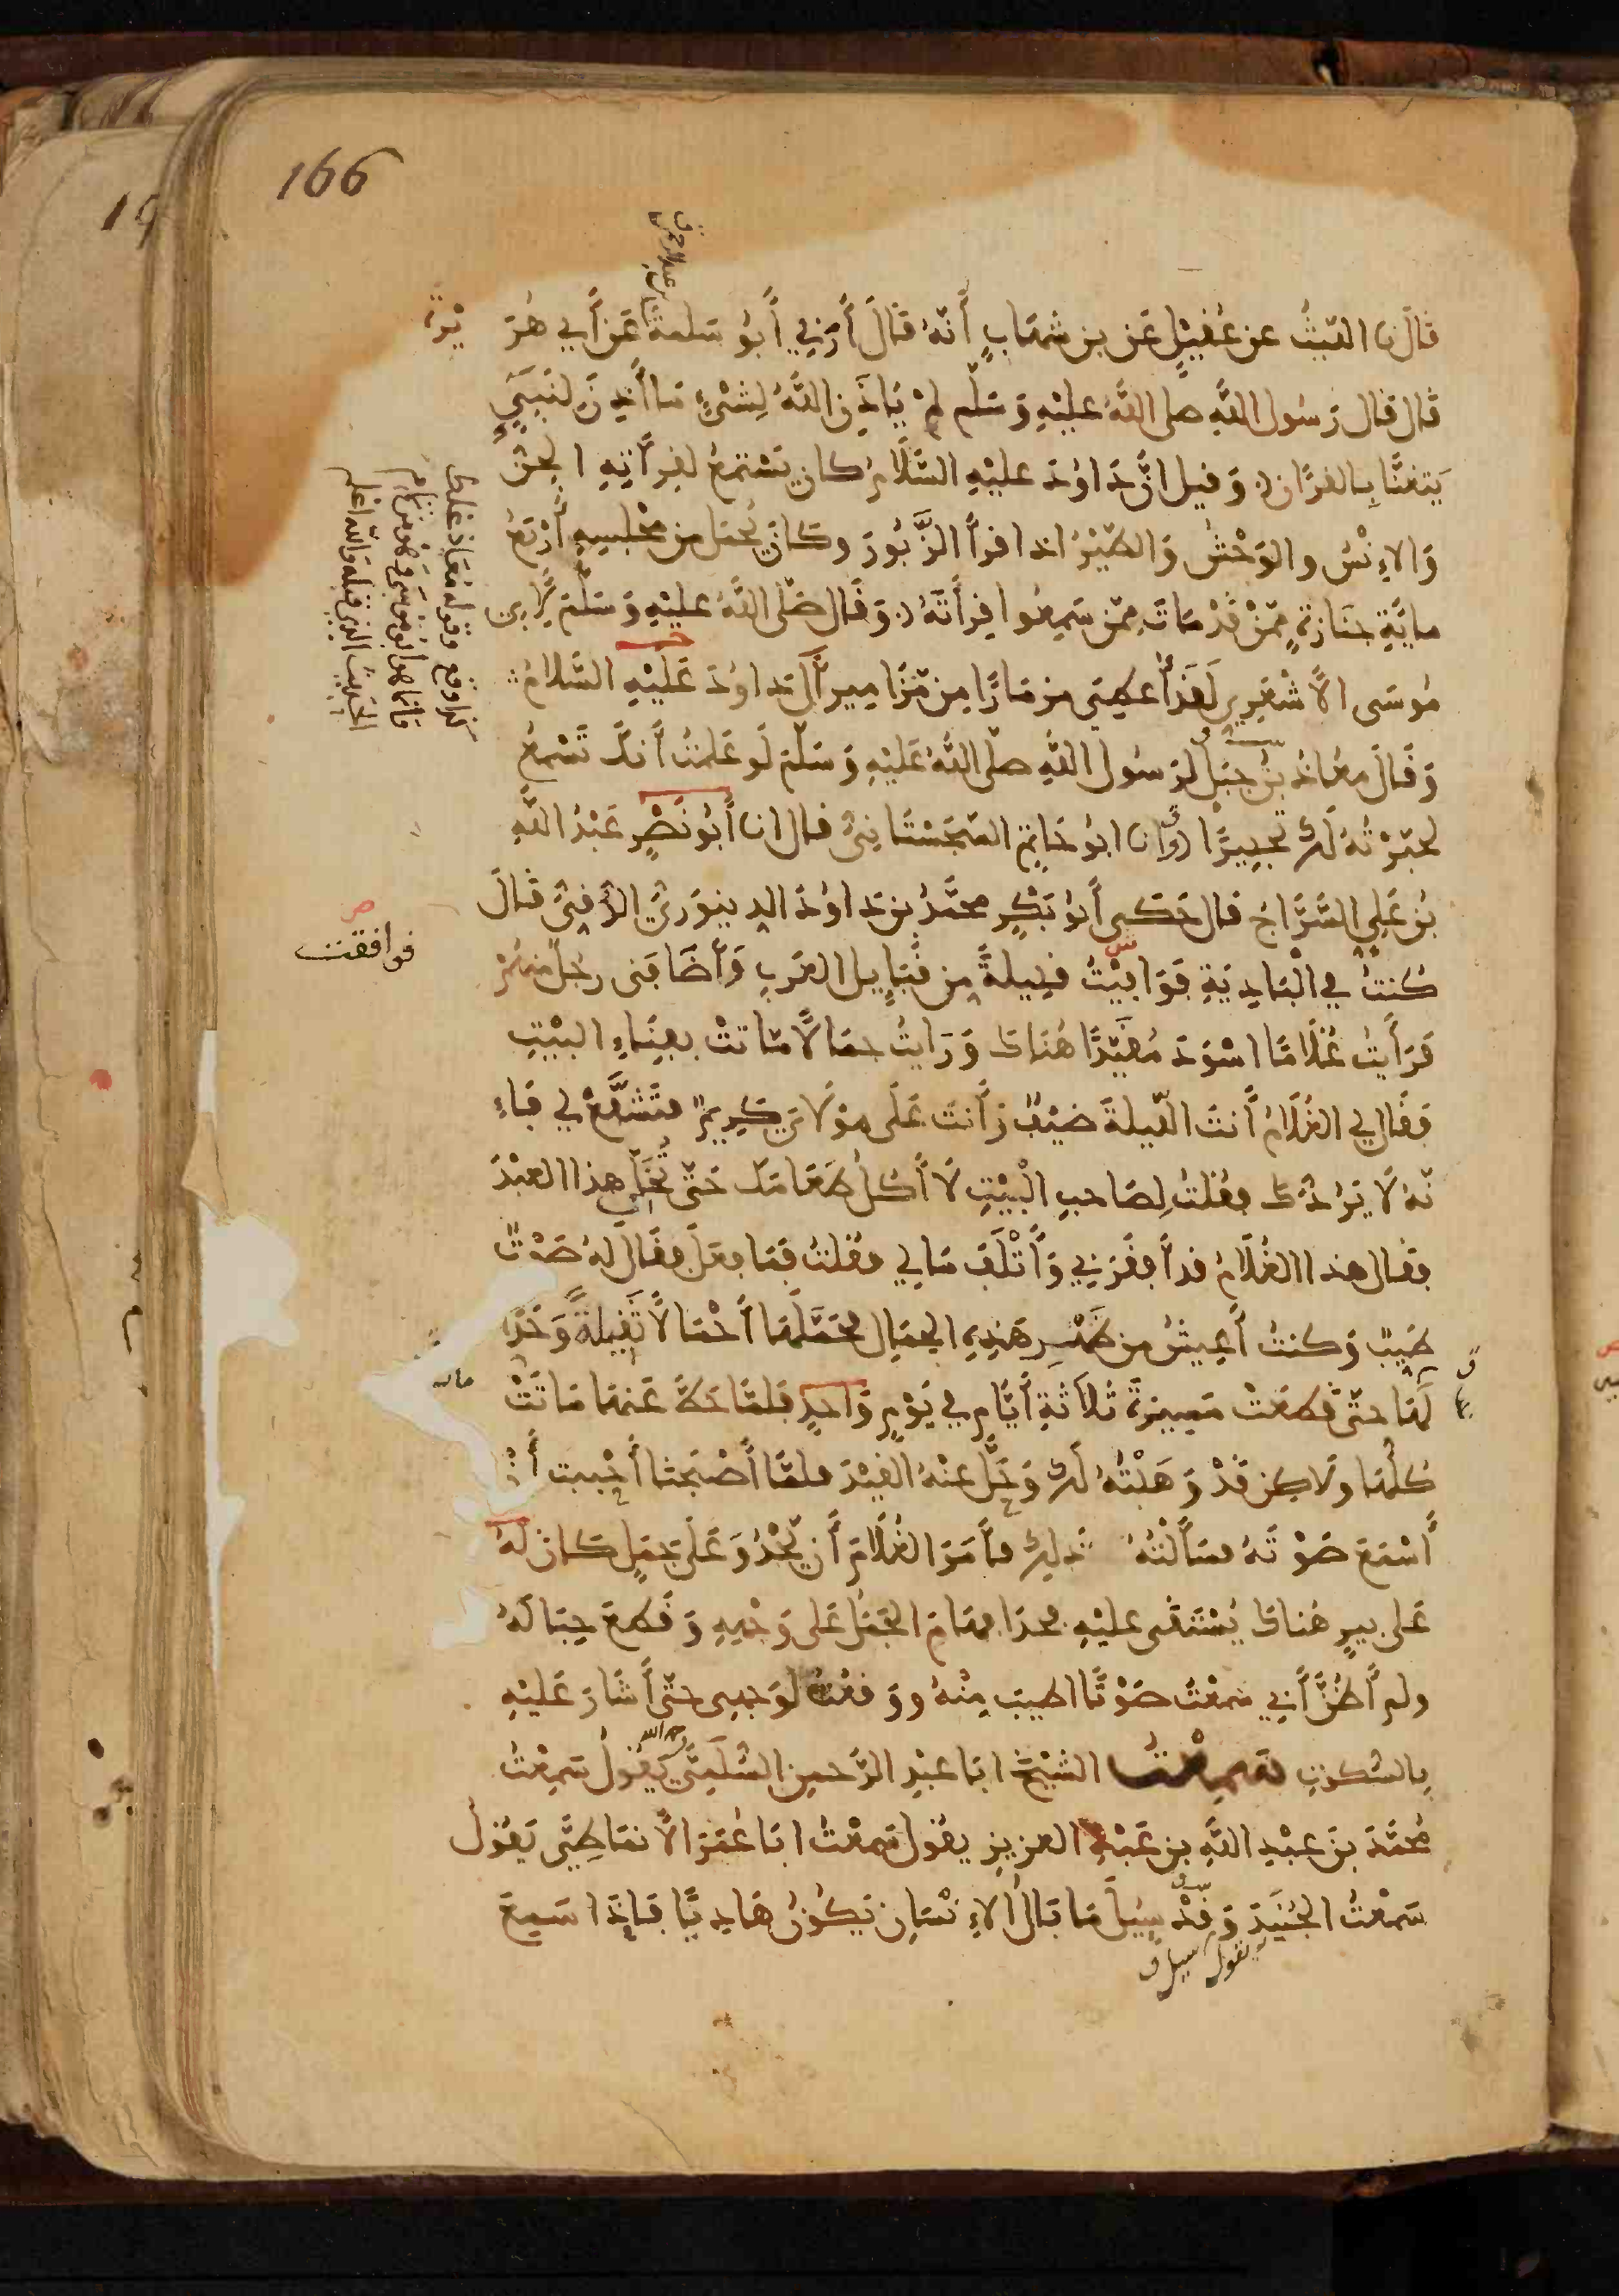 166
بن عبد الرحمن
قَالَ نا الليثُ عن عُقَيْلٍ عَن بن شهَابٍ أَنّهُ قَالَ أَخبرَنِي أَبُو سَلمةَ عَن أَبِي هُرَيْرَةَ
قَال قَال رَسُول اللَّهِ صلى اللَّهُ عليْهِ وَسَلَّم لمْ يَاذَنِ اللَّهُ لِشَىْءٍ مَا أَذِنَ لنَبِيّ
يَتغنَّا بِالقرْآن وَقيل انَّ دَاوُدَ عليْهِ السَّلَامُ كان يَسْتمعُ لقِرأَتِهِ الجنُّ
وَالاِنْسُ والوَحْشُ وَالطّيْرُ اذا قرأَ الزَّبُورَ وكَانَ يُحْمَل من مجْلسِهِ أَرْبَعُ
مايَّةِ جنَازةٍ مِمّنْ قَدْ مَاتَ مِمّن سَمِعُوا قِرأَتَهُ وَقَال صَلّى اللَّهُ عليْهِ وَسَلَّمَ لاَبِى
مُوسَى الاَشْعَرِي لَقَدْ أُعطِيَ مزمَارًا مِن مّزَامِيرِ آل دَاوُدَ عَلَيْهِ السَّلامُ
وَقَالَ معَاذُ بْنُ جبَلٍ لرَسُول اللَّهِ صلّى اللَّهُ عَلَيْهِ وَسَلّمَ لَو عَلمتُ أَنكَ تَسْمعُ
لحَبّرْتُهُ لَكَ تحْبِيرًا انا ابُو حَاتِمٍ السّجَسْتَانِىُّ قال انا أَبُو نَصْرٍ عَبْدُ اللَّهِ
بنُ عَلِيٍّ السَّرَّاجُ قال حَكَى أَبُو بَكْرٍ محمَّدُ بن دَاوُدَ الدينوَرِيُّ الرَّقِيُّ قَالَ
كُنتُ فِي الْبَادِيَةِ فَوَافيْتُ قبِيلةً مِن قَبَايِل العَربِ وَأَضَافَنى رجُلٌ منهُمْ
فَرَأَيتُ غُلَامًا اسْوَدَ مُقيّدًا هُنَاكَ وَرَايتُ جمَالًا مَاتتْ بفِنَاءِ البيْتِ
فَقَال لِي الغُلَامُ أَنتَ الليلةَ ضيْفٌ وأَنتَ عَلَى مَوْلَايَ كَرِيمٌ فتَشَفَّعْ لِي فَاِ
نّهُ لَا يَرُدُّكَ فقُلتُ لِصَاحبِ الْبَيْتِ لَا أَكُلُ طَعَامَكَ حَتَّى تُخَلِّ هذا العبْدَ
فقَال هذا الغُلَامُ قد أَفقَرَنِي وَأَتْلَفَ مَالِي فقلتُ فمَا فعَلَ فقَال لَهُ صَوْتٌ
طيّبٌ وَكنتُ أَعِيشُ من ظَهْرِ هَذِهِ الجمَال فحَمَّلَهَا أَحْمَالًا ثَقِيلةً وَحَدَا
لَهَا حتّى قَطعَتْ مَسِيرَةَ ثَلَاثَةِ أَيَّامٍ فِي يَوْمٍ وَاحدٍ فَلمَّا حَطَّ عَنهَا مَاتَتْ
كلُهَا ولَاكِن قَدْ وَهَبْتُهُ لَكَ وَحَلَّ عنْهُ القيْدَ فلمَّا أَصْبَحنا أَحْببت أَنْ
أَسْمَعَ صَوْتَهُ فسَأَلْتُهُ ذَلِكَ فأَمَرَ الغُلَامَ أَن يّحْدُوَ عَلَى جمَلٍ كَان لَهُ
عَلى بيرٍ هُنَاكَ يُسْتَقَى عليْهِ فحدَا فهَامَ الجَمَلُ عَلى وَجْهِهِ وَقَطعَ حِبَالَهُ
ولم أَظُنُّ أَنِي سَمعْتُ صَوْتًا اطيبَ مِنْهُ ووَقعْتُ لوَجهِى حتّى أَشَارَ عَليْهِ
بالسُّكُوتِ سَمِعْتُ الشيْخَ ابَا عَبْدِ الرَّحمنِ السُّلَمِيَّ رحمه الله يَقُولُ سَمِعْتُ
مُحمَّدَ بنَ عبْدِ اللَّهِ بن عَبْدِ العزيزِ يقُول سَمعْتُ ابَا عُمَرَ الاَنمَاطِيَّ يَقُولُ
سَمعْتُ الجُنَيْدَ وَقَدْ سُيِلَ مَا بَالُ الاِنْسَانِ يَكُونُ هَادِيًا فَإِذَا سَمِعَ
يقول سيل
كذا وقع وقوله معاذ غلط
فانما هو ابو موسى وهو من تمام
الحديث الذي قبله والله اعلم
فوافقت